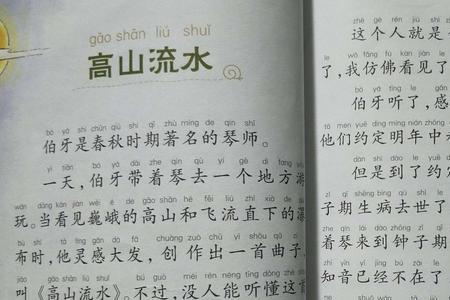 gāo shān liú shuǐ
高山流水
bó yá shì chūn qiū shí qī zhù míng de qín shī
伯牙是春秋时期著名的琴师。
yì tiān bó yá dài zhe qín qù yí gè dì fang yóu
一天,伯牙带着琴去一个地方游
wán dāng kàn jiàn wēi é de gāo shān hé fēi liú zhí xià de
玩。当看见巍峨的高山和飞流直下的瀑
bù shí tā líng gǎn dà fā chuàng zuò chū yì shǒu qǔ zi
布时,他灵感大发,创作出一首曲子,
jiào gāo shān liú shuǐ bú guò méi rén néng tīng dǒng zhè
叫《高山流水》。不过,没人能听懂这首
zhè gè rén jiù shì
这个人就是
le wǒ fǎng fú kàn jiàn le
了,我仿佛看见了
bó yá tīng le gǎn
伯牙听了,感
tā men yuē dìng míng nián zhōng
他们约定明年中
dàn shì dào le yuē
但是到了约
zǐ qī shēng bìng qù shì le
子期生病去世了
zhe qín lái dào zhōng zǐ qī
着琴来到钟子期
zhī yīn yǐ jīng bú zài le
知音已经不在了